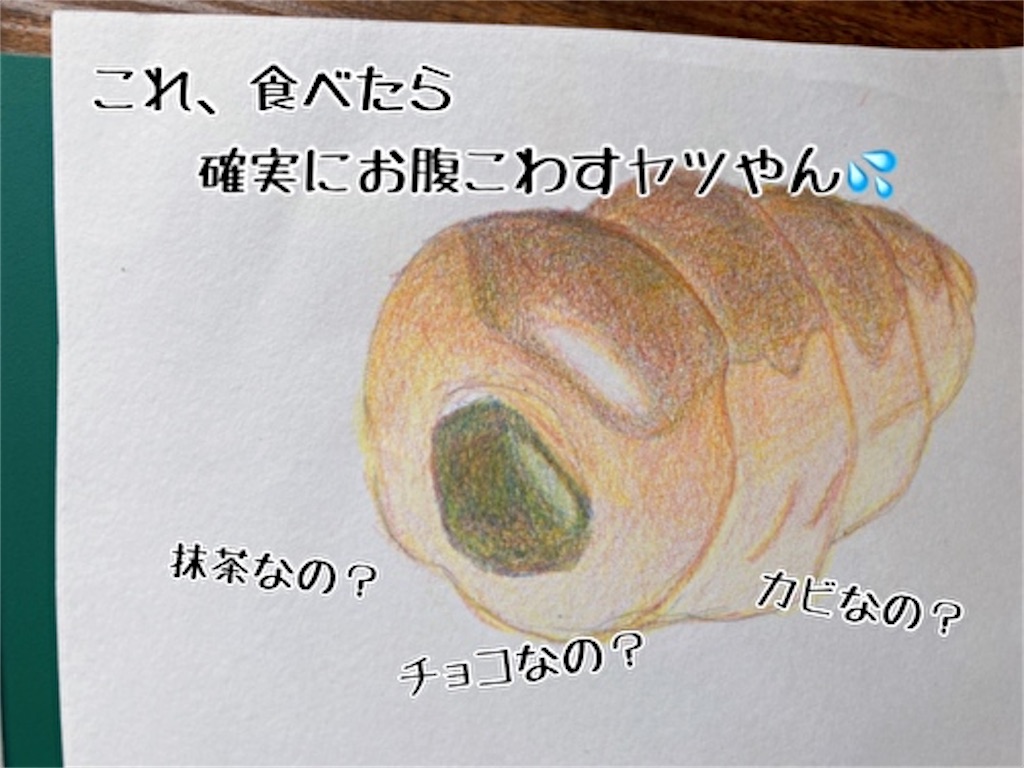 これ、食べたら
確実にお腹こわすヤツやん💦
抹茶なの？
カビなの？
チョコなの？